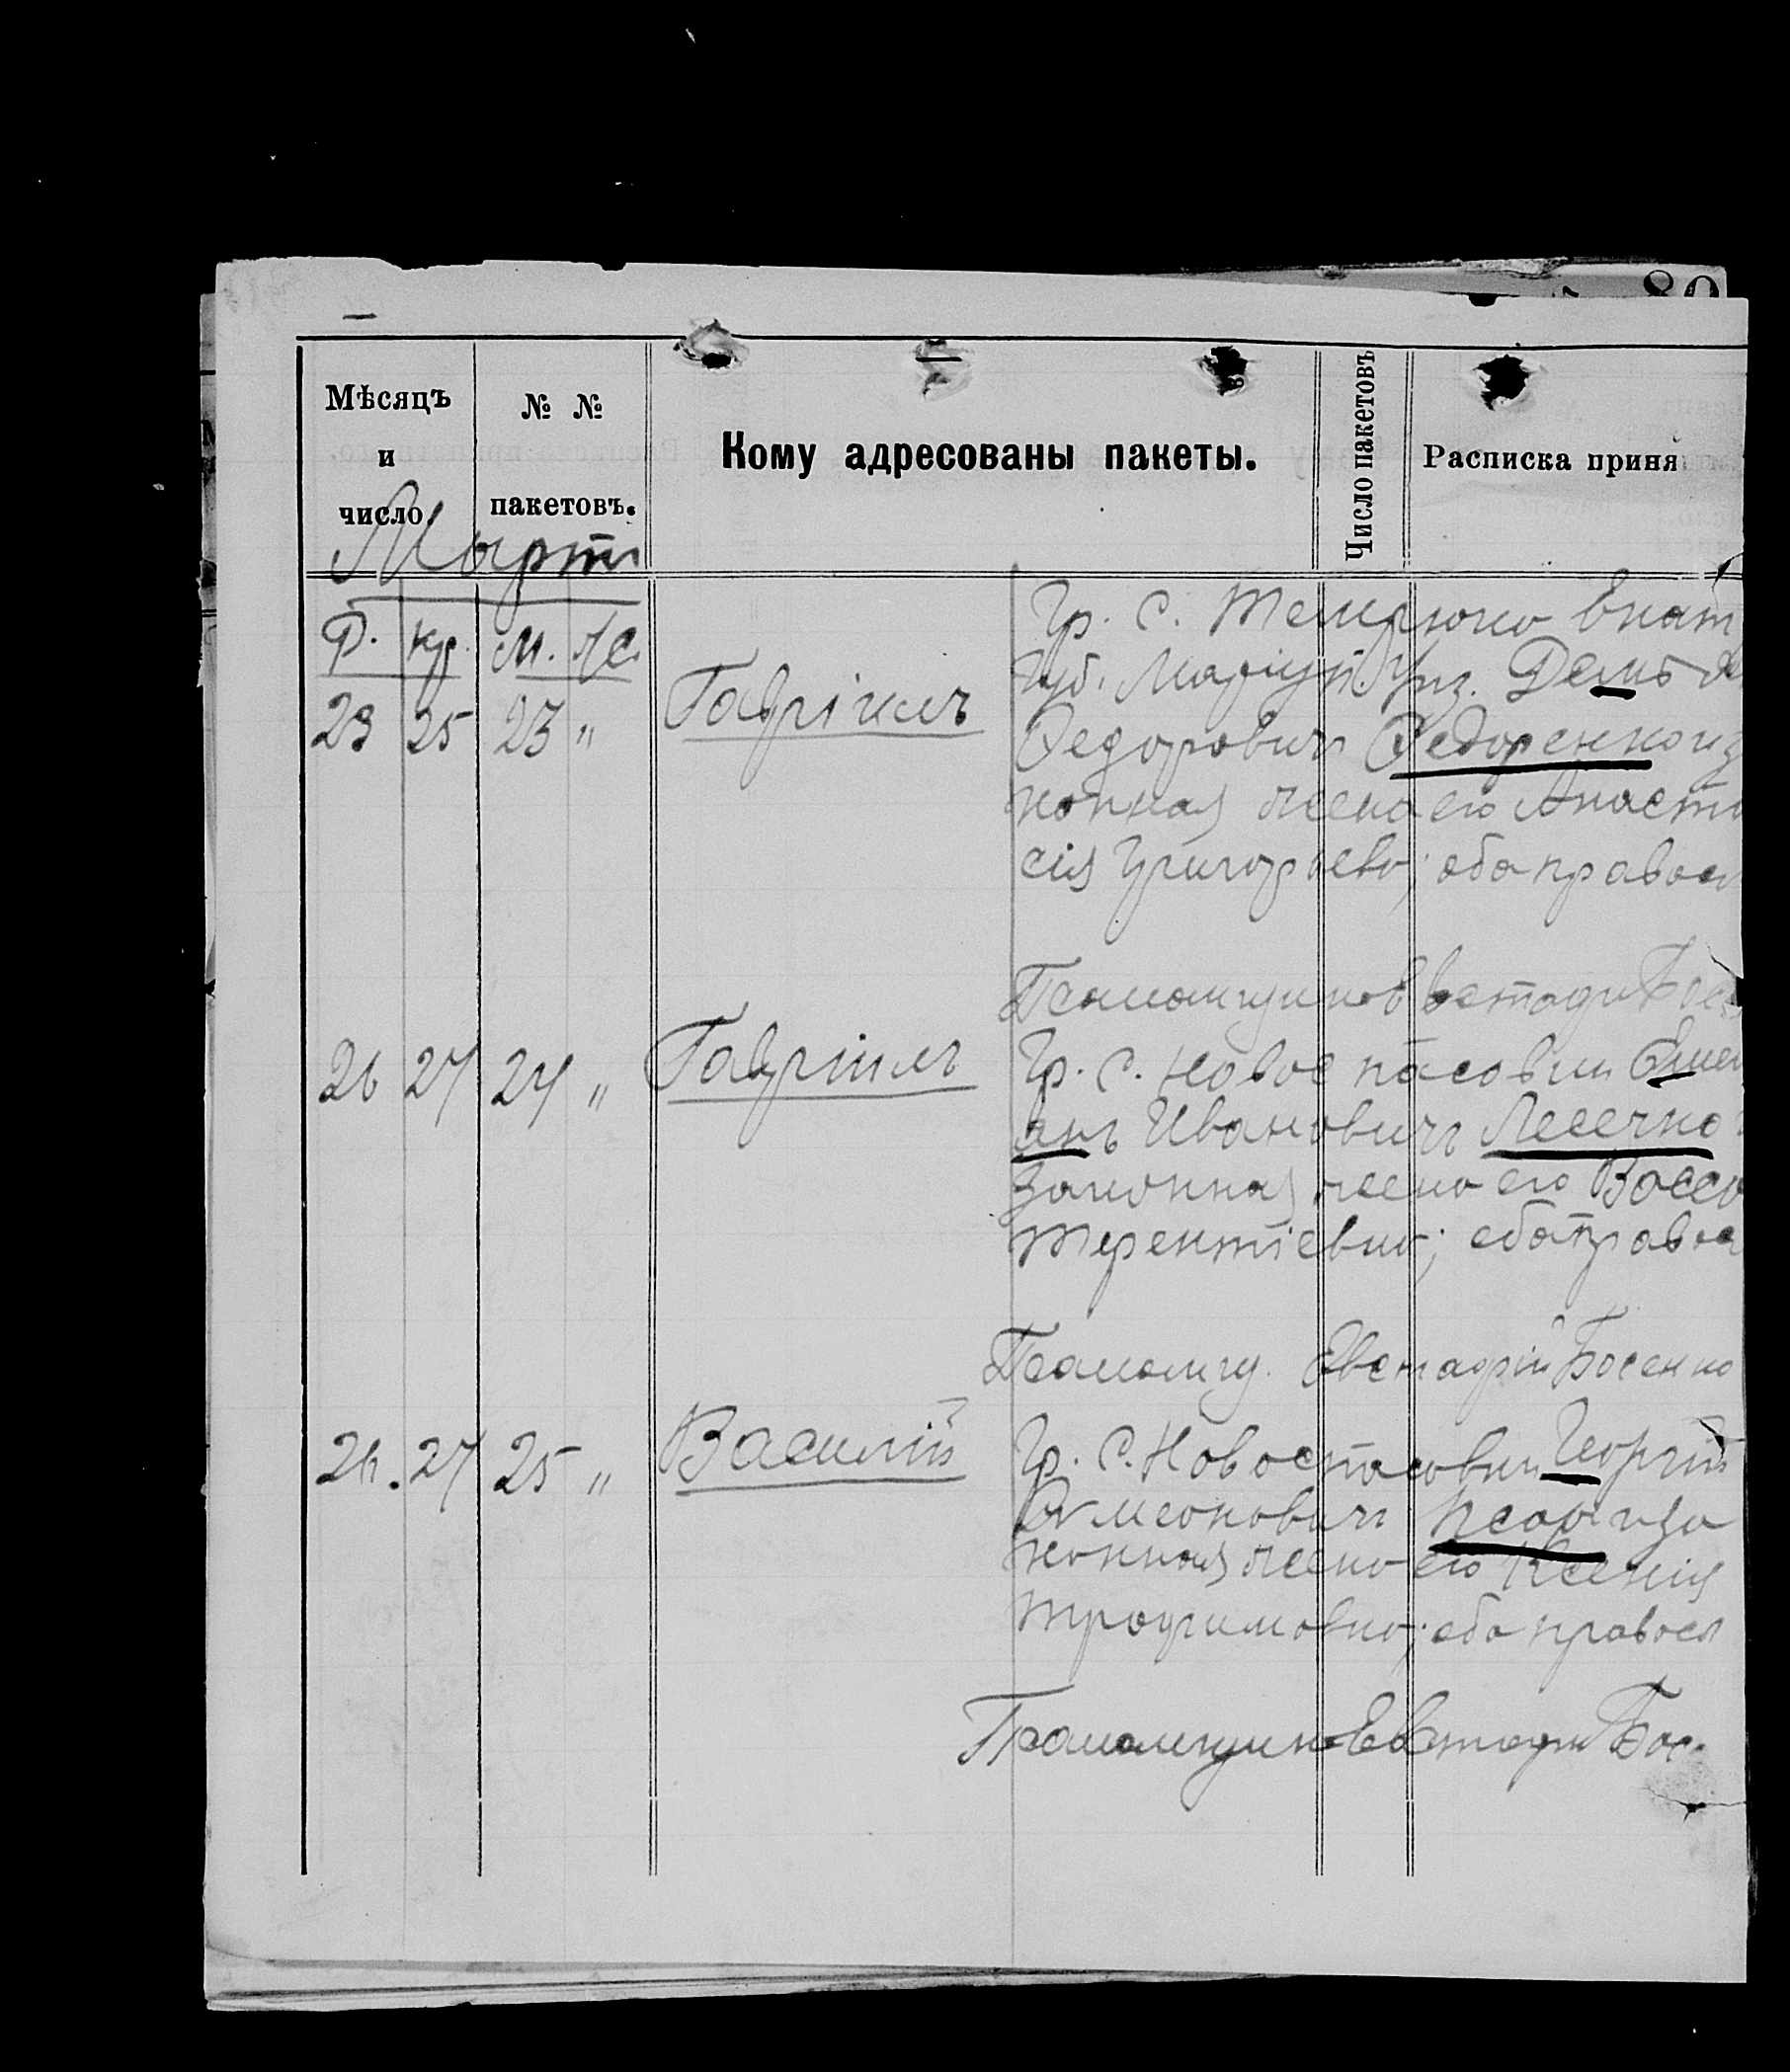 80
Мѣсяцъ
и
число.
№ №
пакетовъ.
Кому адресованы пакеты.
Число пакетовъ
Расписка приня
Мартъ
Р. Кр. М. Ж.
23 25 23 " Гавріилъ
Гр. С. Темрюка Екат
Губ. Маріуп. Уѣз.
Федоровичъ Федоренко и з
конная жена его Анаста
сія Григорьева; оба правосл
Псаломщикъ Евстафій Бос
26 27 24 " Гавріилъ
Гр. С. Новоспасовки Емел
янъ Ивановичъ Лесечко
законная жена его Васса
Терентіевна; оба правосл
Псаломщ. Евстафій Босенко
26. 27 25 " Василій
Гр. С. Новоспасовки Георгій
Симеоновичъ и за
конная жена его Ксенія
Трофимовна; оба правосл
Псаломщикъ Евстафій Бос.